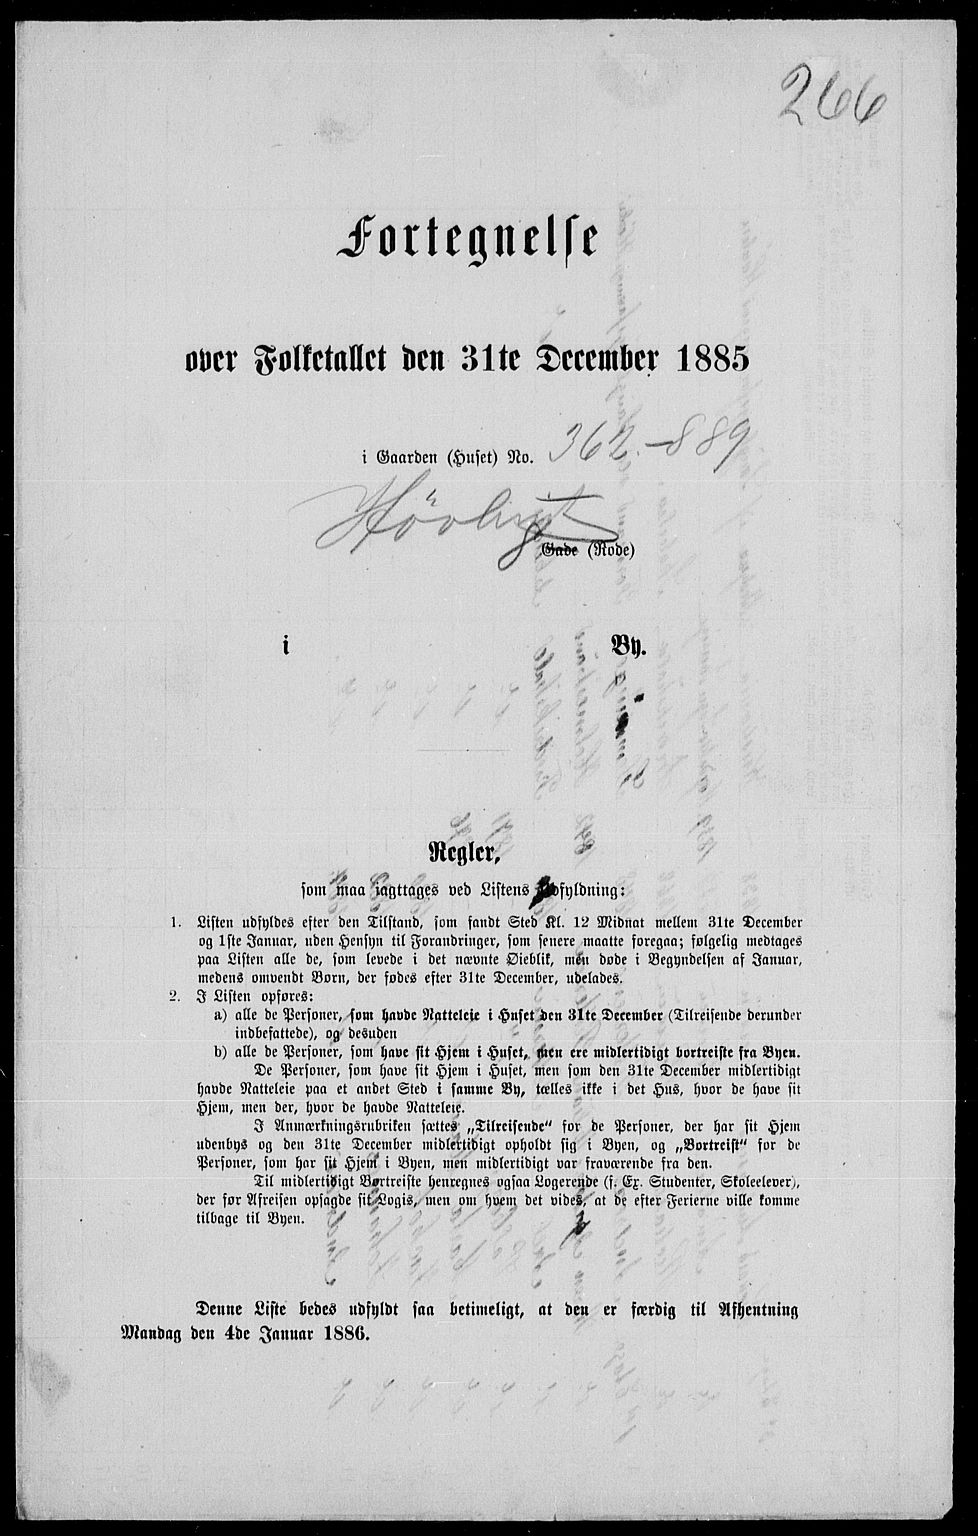 266
Fortegnelse
over Folketallet den 31te December 1885
i Gaarden (Huset) No. 362.-889
Gade (Rode)
i By.
Regler,
som maa iagttages ved Listens Udfyldning:
1. Listen udfyldes efter den Tilstand, som fandt Sted Kl. 12 Midnat mellem 31te December
og 1ste Januar, uden Hensyn til Forandringer, som senere maatte foregaa; følgelig medtages
paa Listen alle de, som levede i det nævnte Øieblik, men døde i Begyndelsen af Januar,
medens omvendt Børn, der fødes efter 31te December, udelades.
2. I Listen opføres:
a) alle de Personer, som havde Natteleie i Huset den 31te December (Tilreisende derunder
indbefattede), og desuden
b) alle de Personer, som have sit Hjem i Huset, men ere midlertidigt bortreiste fra Byen.
De Personer, som have sit Hjem i Huset, men som den 31te December midlertidigt
havde Natteleie paa et andet Sted i samme By, tælles ikke i det Hus, hvor de have sit
Hjem, men der, hvor de havde Natteleie.
I Anmærkningsrubriken sættes „Tilreisende“ for de Personer, der har sit Hjem
udenbys og den 31te December midlertidigt opholdt sig i Byen, og „Bortreist“ for de
Personer, som har sit Hjem i Byen, men midlertidigt var fraværende fra den.
Til midlertidigt Bortreiste henregnes ogsaa Logerende (f. Ex. Studenter, Skoleelever),
der før Afreisen opsagde sit Logis, men om hvem det vides, at de efter Ferierne ville komme
tilbage til Byen.
Denne Liste bedes udfyldt saa betimeligt, at den er færdig til Afhentning
Mandag den 4de Januar 1886.